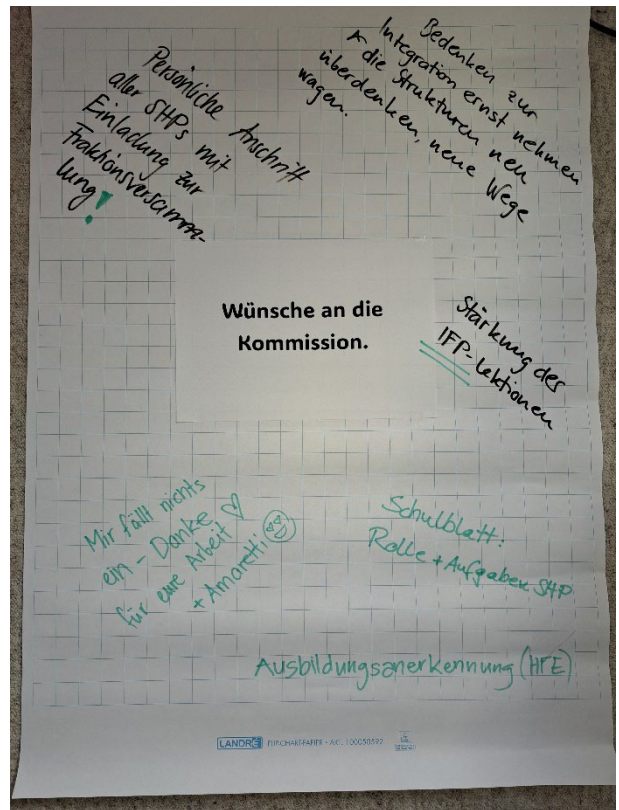 Persönliche Anschrift
aller SHPs mit
Einladung zur
Fraktionsversamm-
lung!
Bedenken zur
Integration ernst nehmen
die Strukturen neu
überdenken, neue Wege
wagen.
Wünsche an die
Kommission.
Stärkung des
IFP-Lektionen
Mir fällt nichts
ein – Danke
für eure Arbeit ♡
+ Amaretti
Schulblatt:
Rolle + Aufgaben SHP
Ausbildungsanerkennung (HFE)
LANDRÉ